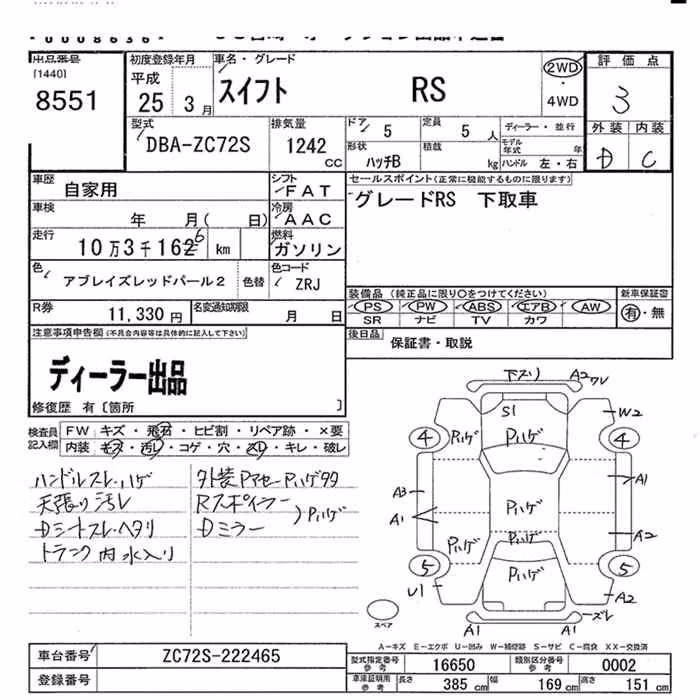 出品番号
[1440]
8551
初度登録年月
平成
25 3月
車名・グレード
スイフト RS
2WD
・
4WD
評価点
3
外装 内装
D C
型式
DBA-ZC72S
排気量
1242 cc
ドア
5
定員
5 人
ディーラー・並行
形状
ハッチB
積載
kg
モデル年式 年
ハンドル 左・右
車歴
自家用
シフト
FAT
車検
年 月( 日)
冷房
AAC
走行
10万3千16 km
燃料
ガソリン
色
アブレイズレッドパール2
色替
色コード
ZRJ
R券
11,330円
名変通知期限
月 日
セールスポイント(正常に機能するものに限ります)
グレードRS 下取車
装備品(純正品に限り○をつけてください)
PS PW ABS エアB AW
SR ナビ TV カワ
新車保証書
有・無
後日品
保証書・取説
注意事項申告欄(不具合内容等は具体的に記入して下さい)
ディーラー出品
修復歴 有〔箇所 〕
検査員記入欄
FW キズ・飛石・ヒビ割・リペア跡・×要
内装 キズ・汚レ・コゲ・穴・スレ・キレ・破レ
ハンドルスレ・ハゲ
天張り汚レ
Dシートスレ・ヘタリ
トランク内水入り
外装Pアセ・Pハゲタタ
Rスポイラー
Dミラー
)Pハゲ
下スリ A2ワレ
S1
W2
4 Pハゲ Pハゲ 4
A3 A1
A1 Pハゲ
Pハゲ A2
5 Pハゲ 5
U1 A2
スペア
A1 A1 ズレ
A-キズ E-エクボ U-凹み W-補修跡 S-サビ C-腐食 XX-交換済
車台番号
ZC72S-222465
登録番号
型式指定番号 参考
16650
類別区分番号 参考
0002
車庫証明用 参考
長さ 385 cm
幅 169 cm
高さ 151 cm